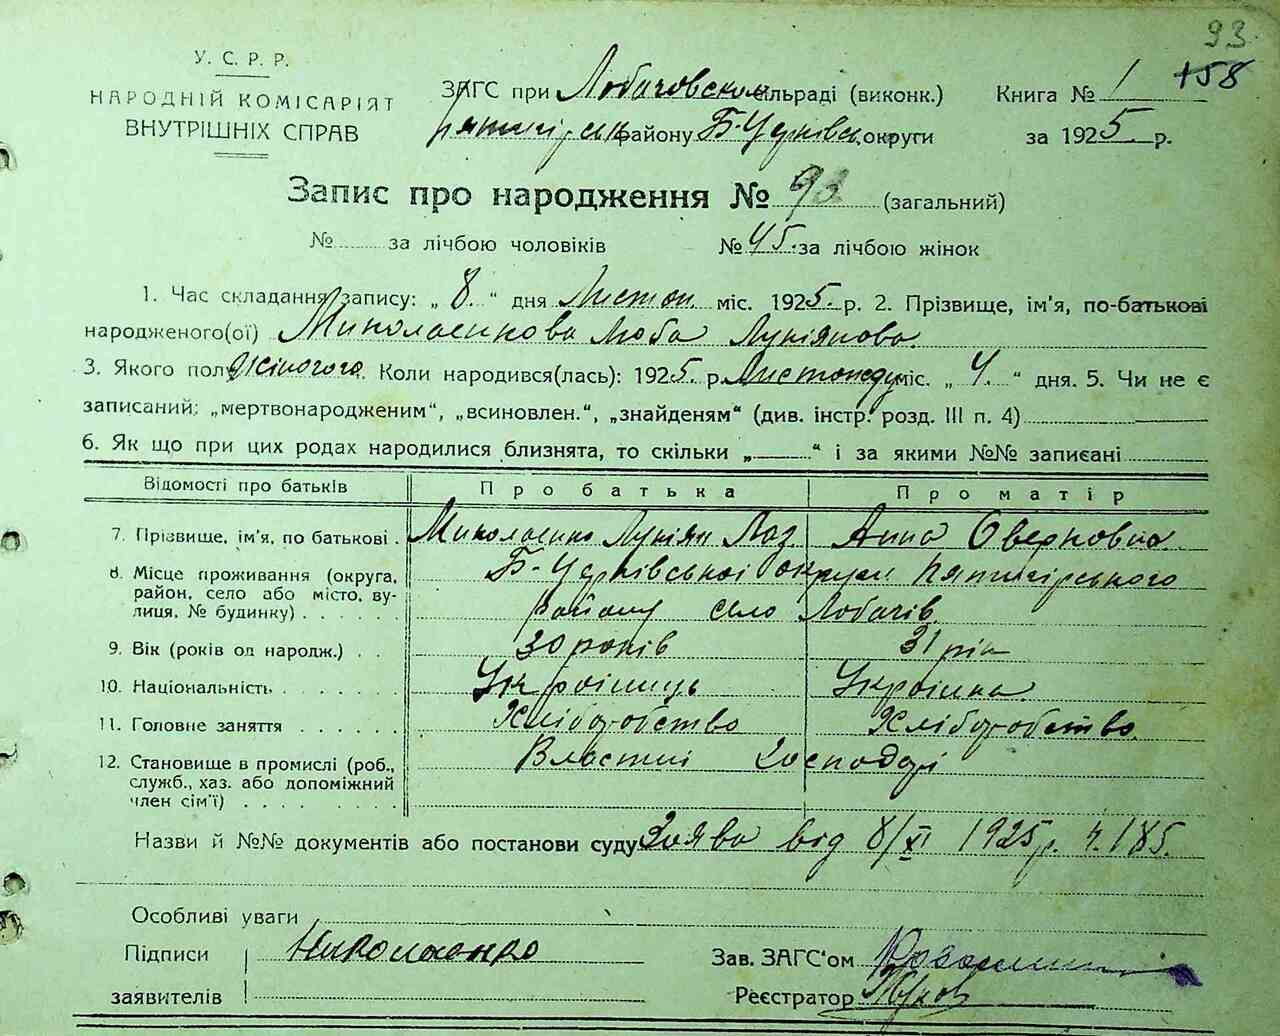 93
158
У. С. Р. Р.
НАРОДНІЙ КОМІСАРІЯТ
ВНУТРІШНІХ СПРАВ
ЗАГС при Лобачовском сільраді (виконк.) Книга № 1
району Б-Церківськ. округи за 1925 р.
Запис про народження № 93 (загальний)
№ за лічбою чоловіків № 45. за лічбою жінок
1. Час складання запису: „ 8. “ дня Листоп. міс. 1925. р. 2. Прізвище, ім'я, по-батькові
народженого(ої) Миколаєнкова Люба Лукіянова.
3. Якого полу Жіночого. Коли народився(лась): 1925. р. Листопаду міс. „ 4. “ дня. 5. Чи не є
записаний: „мертвонародженим“, „всиновлен.“, „знайденям“ (див. інстр. розд. III п. 4)
6. Як що при цих родах народилися близнята, то скільки „ “ і за якими №№ записані
Відомості про батьків Про батька Про матір
7. Прізвище, ім'я, по батькові . Миколаєнко Лукіян Лаз. Анна Оверковна.
8. Місце проживання (округа, Б-Церківської округи Пятигірського
район, село або місто, ву-
лиця, № будинку) . . . . . . району село Лобачів.
9. Вік (років од народж.) . . 30 років 31 рік
10. Національність . . . . . . . Українець Українка.
11. Головне заняття . . . . . . Хліборобство Хліборобство.
12. Становище в промислі (роб., Властні господарі
служб., хаз. або допоміжний
член сім'ї) . . . . . . . .
Назви й №№ документів або постанови суду Заява від 8/XI 1925 р. ч. 185.
Особливі уваги
Підписи Миколаенко Зав. ЗАГС'ом
заявителів Реєстратор